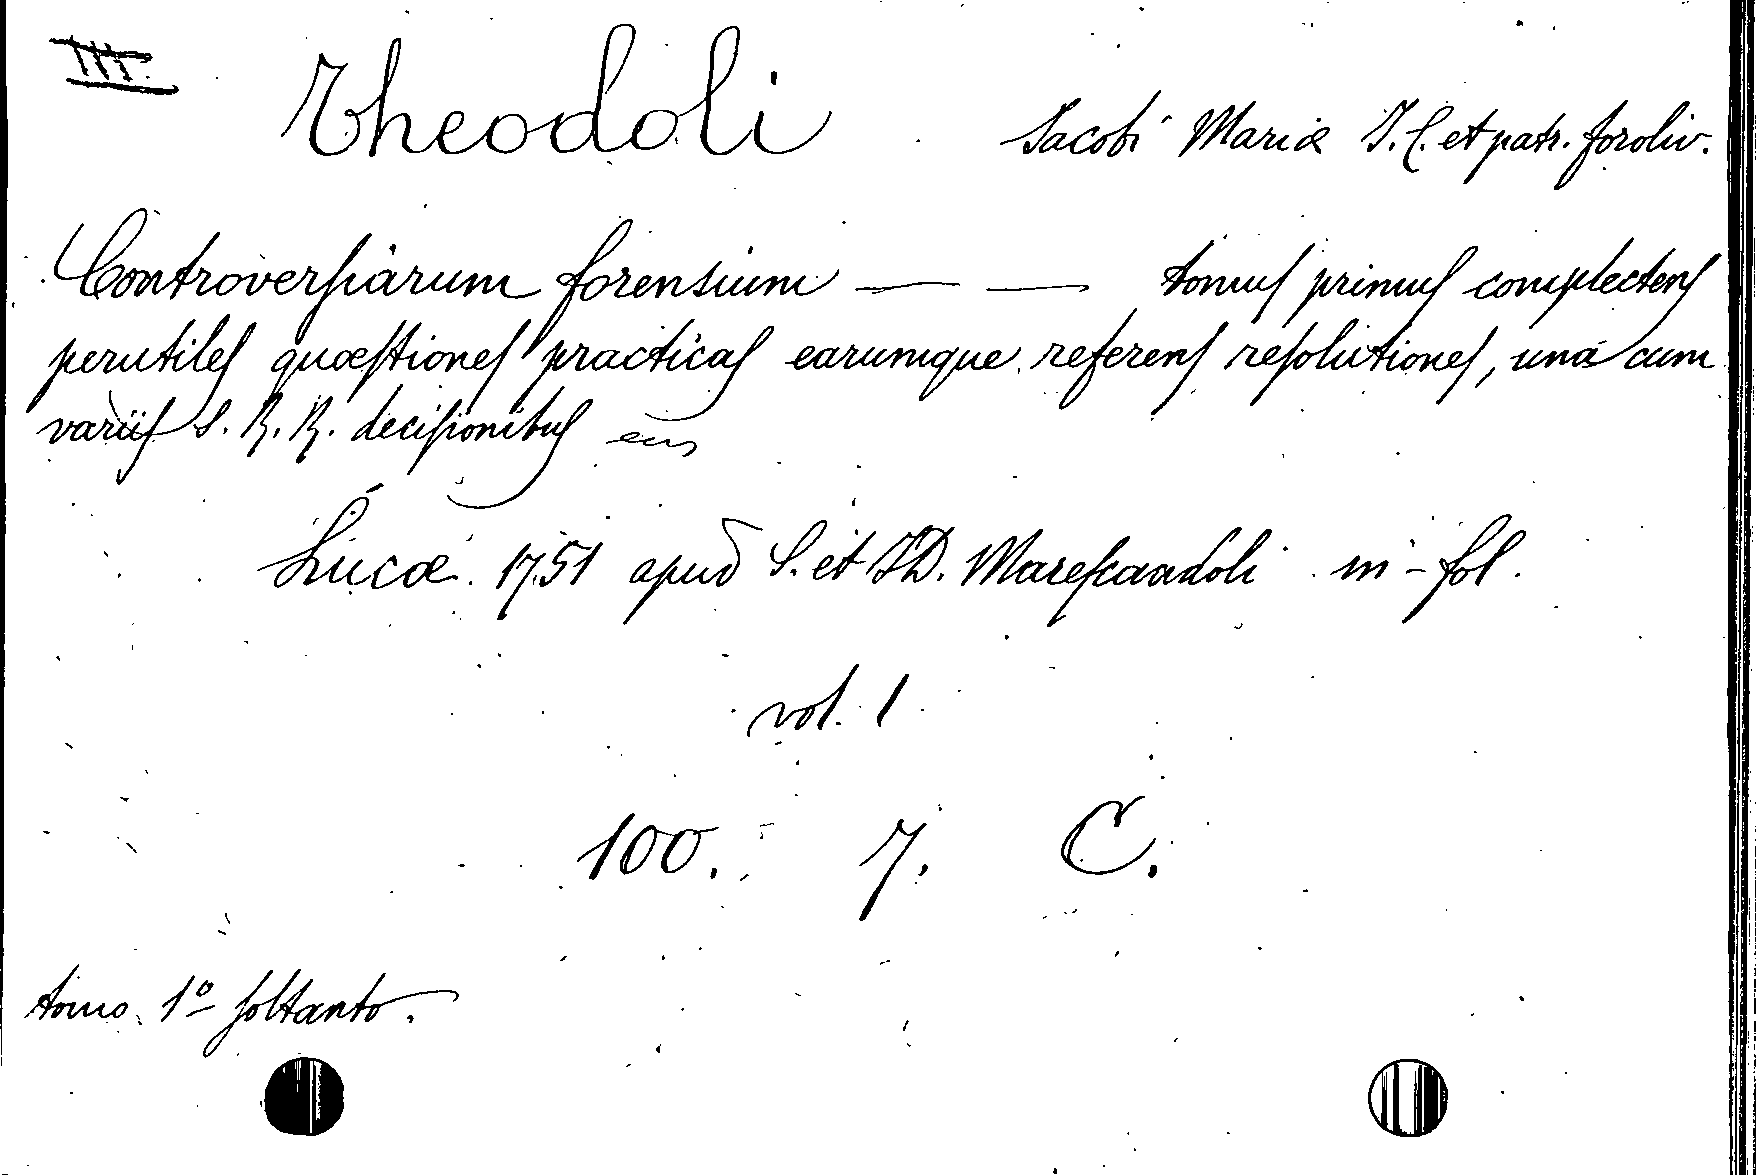 III.
Theodoli Jacobi Mariæ J. C. et patr. foroliv.
Controversiarum forensium — — tomus primus complectens
perutiles quæstiones practicas earumque referens resolutiones, una cum
variis S. R. R. decisionibus
Lucæ 1751 apud S. et JD. Marescandoli in-fol.
vol. 1
100. 7. C.
tomo 1º soltanto.